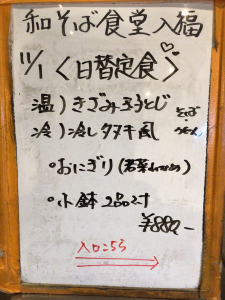 和そば食堂入福
11/1 〈日替定食〉
温)きざみ玉子とじ そば
冷)冷しタヌキ風 うどん
・おにぎり(若菜
・小鉢2品付
¥880-
入口こちら